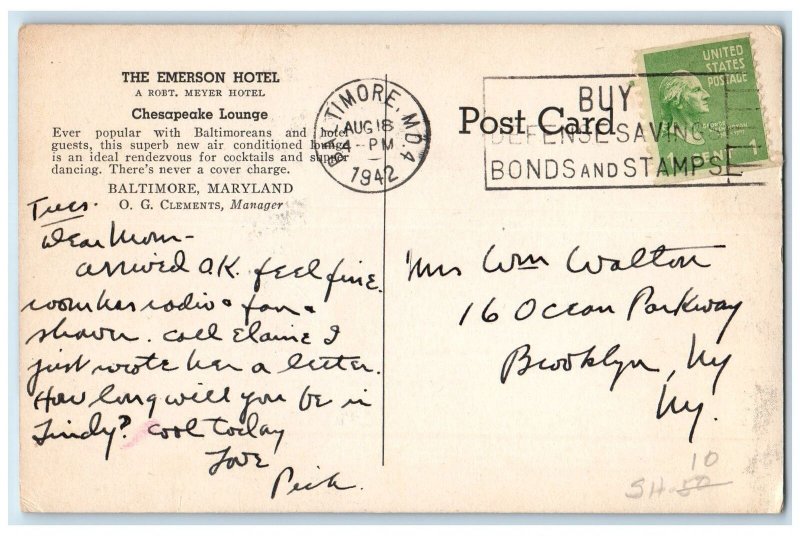 THE EMERSON HOTEL
A ROBT. MEYER HOTEL
Chesapeake Lounge
Ever popular with Baltimoreans and hotel
guests, this superb new air conditioned lounge
is an ideal rendezvous for cocktails and supper
dancing. There's never a cover charge.
BALTIMORE, MARYLAND
O. G. CLEMENTS, Manager
Tues.
Dear Mom-
arrived O.K. feel fine.
room has radio & fan &
shown. call Elaine I
just wrote her a letter.
How long will you be in
Lindy? cool today
Love
BALTIMORE, MD. 4
AUG 18
4-PM
1942
Post Card
BUY
DEFENSE SAVINGS
BONDS AND STAMPS
UNITED
STATES
POSTAGE
1
Mrs Wm Walton
16 Ocean Parkway
Brooklyn, Ny
Ny.
10
SH-50